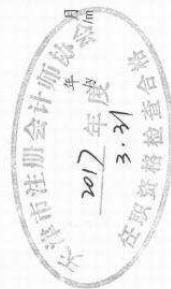 天津市注册会计师协会
2017年度
3.31
任职资格检查合格
年
月
/m